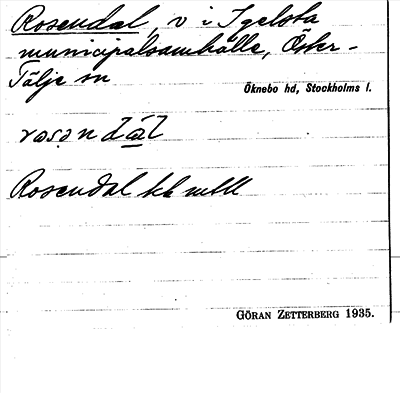 Rosendal, v i Igelsta
municipalsamhälle, Öster-
Tälje sn
Öknebo hd, Stockholms l.
rosəndál
Rosendal
GÖRAN ZETTERBERG 1935.